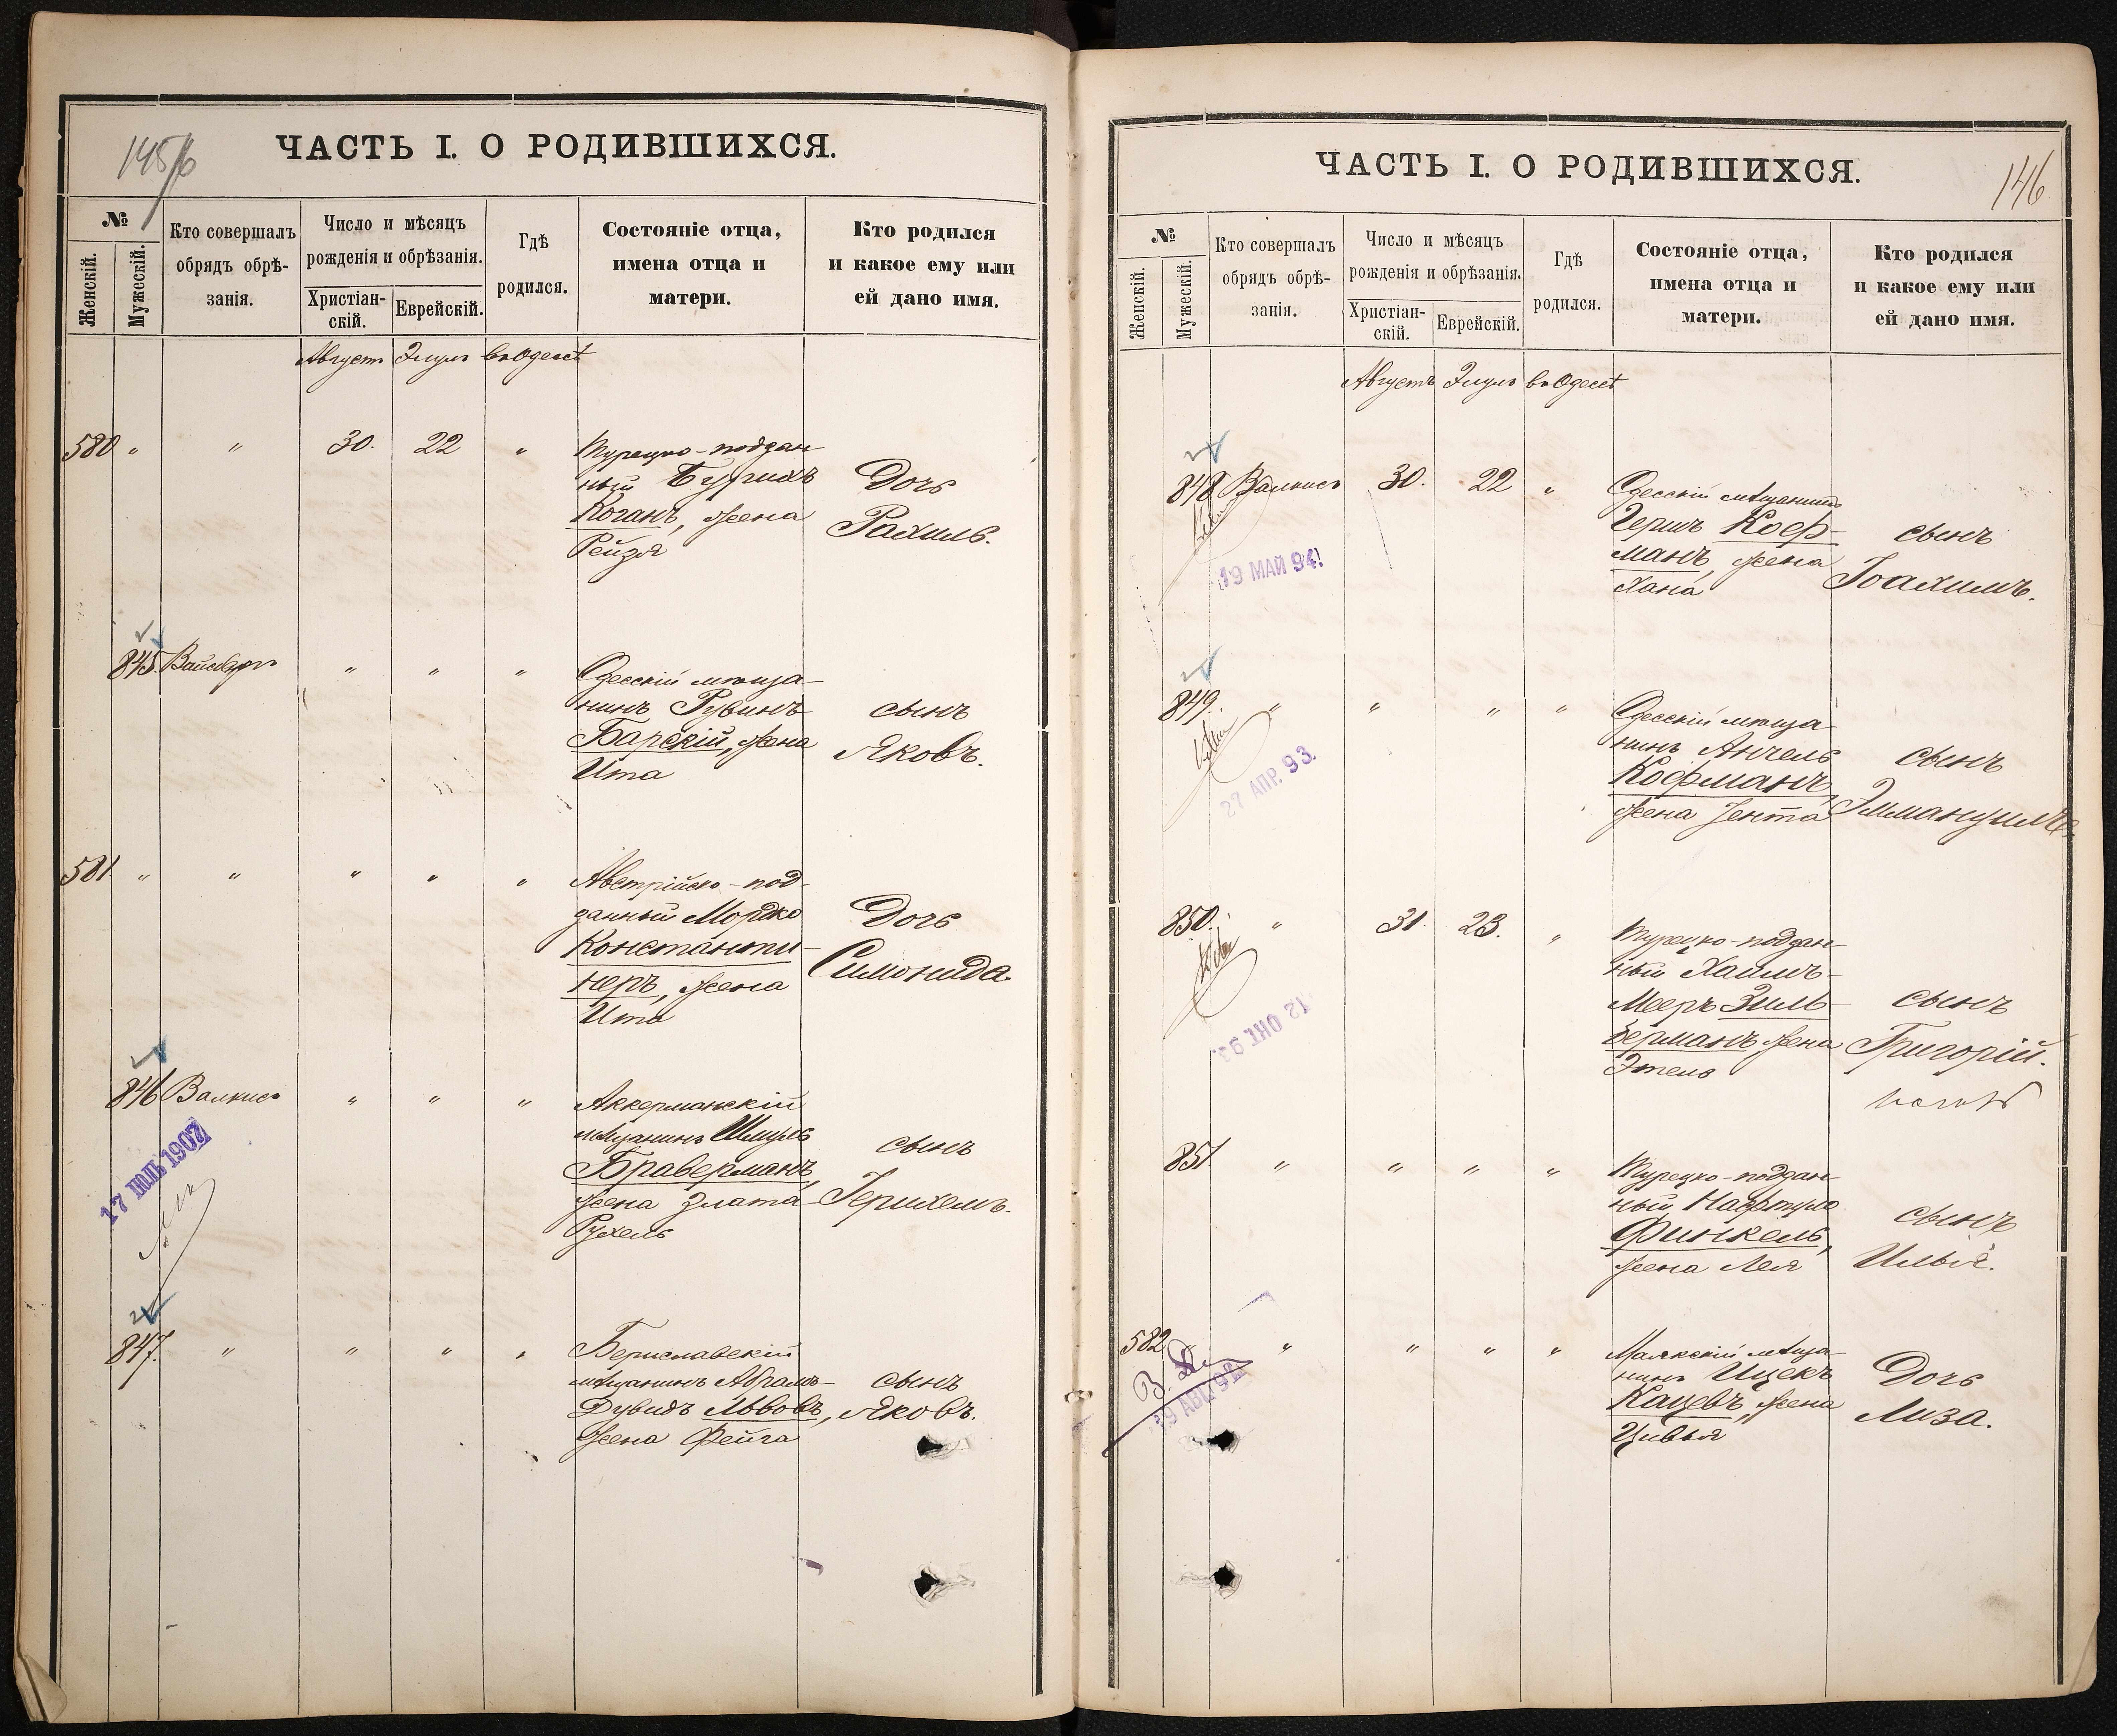 145/6
ЧАСТЬ I. О РОДИВШИХСЯ.
№
Женскій.
Мужескій.
Кто совершалъ
обрядъ обрѣ-
занія.
Число и мѣсяцъ
рожденія и обрѣзанія.
Христіан-
скій.
Еврейскій.
Гдѣ
родился.
Состояніе отца,
имена отца и
матери.
Кто родился
и какое ему или
ей дано имя.
Августъ Элулъ въ Одессѣ
580 " " 30. 22 " Турецко-поддан-
ный
Коганъ, жена
Рейзя
Дочь
Рахиль.
845. Вайсбергъ " " " Одесскій мѣща-
нинъ Рувинъ
Барскій, жена
Ита
сынъ
Яковъ.
581 " " " " " Австрійско-под-
данный Мордко
Константи-
неръ, жена
Ита
Дочь
Симонида.
846 Валкисъ " " " Аккерманскій
мѣщанинъ Шмуль
Браверманъ,
жена Злата-
Рухель
сынъ
Іерихемъ.
17 ІЮЛЬ 1907
847. " " " " Бериславскій
мѣщанинъ Абрамъ-
Дувидъ Львовъ,
жена Фейга
сынъ
Яковъ.
146
ЧАСТЬ I. О РОДИВШИХСЯ.
№
Женскій.
Мужескій.
Кто совершалъ
обрядъ обрѣ-
занія.
Число и мѣсяцъ
рожденія и обрѣзанія.
Христіан-
скій.
Еврейскій.
Гдѣ
родился.
Состояніе отца,
имена отца и
матери.
Кто родился
и какое ему или
ей дано имя.
Августъ Элулъ въ Одессѣ
848 Валкисъ 30. 22 " Одесскій мѣщанинъ
Гершъ Коф-
манъ, жена
Хана
сынъ
Іоахимъ.
19 МАЙ 94
849. " " " " Одесскій мѣща-
нинъ Анчель
Кофманъ,
жена Іента
сынъ
Эммануилъ.
27 АПР. 93.
850. " 31. 23. " Турецко-поддан-
ный Хаимъ-
Мееръ Зиль-
берманъ, жена
Этель
сынъ
Григорій.
851. " " " " Турецко-поддан-
ный Нафтула
Финкель,
жена Лея
сынъ
Илья.
582 " " " " Маякскій мѣща-
нинъ Ицекъ
Кацевъ, жена
Цивья
Дочь
Лиза.